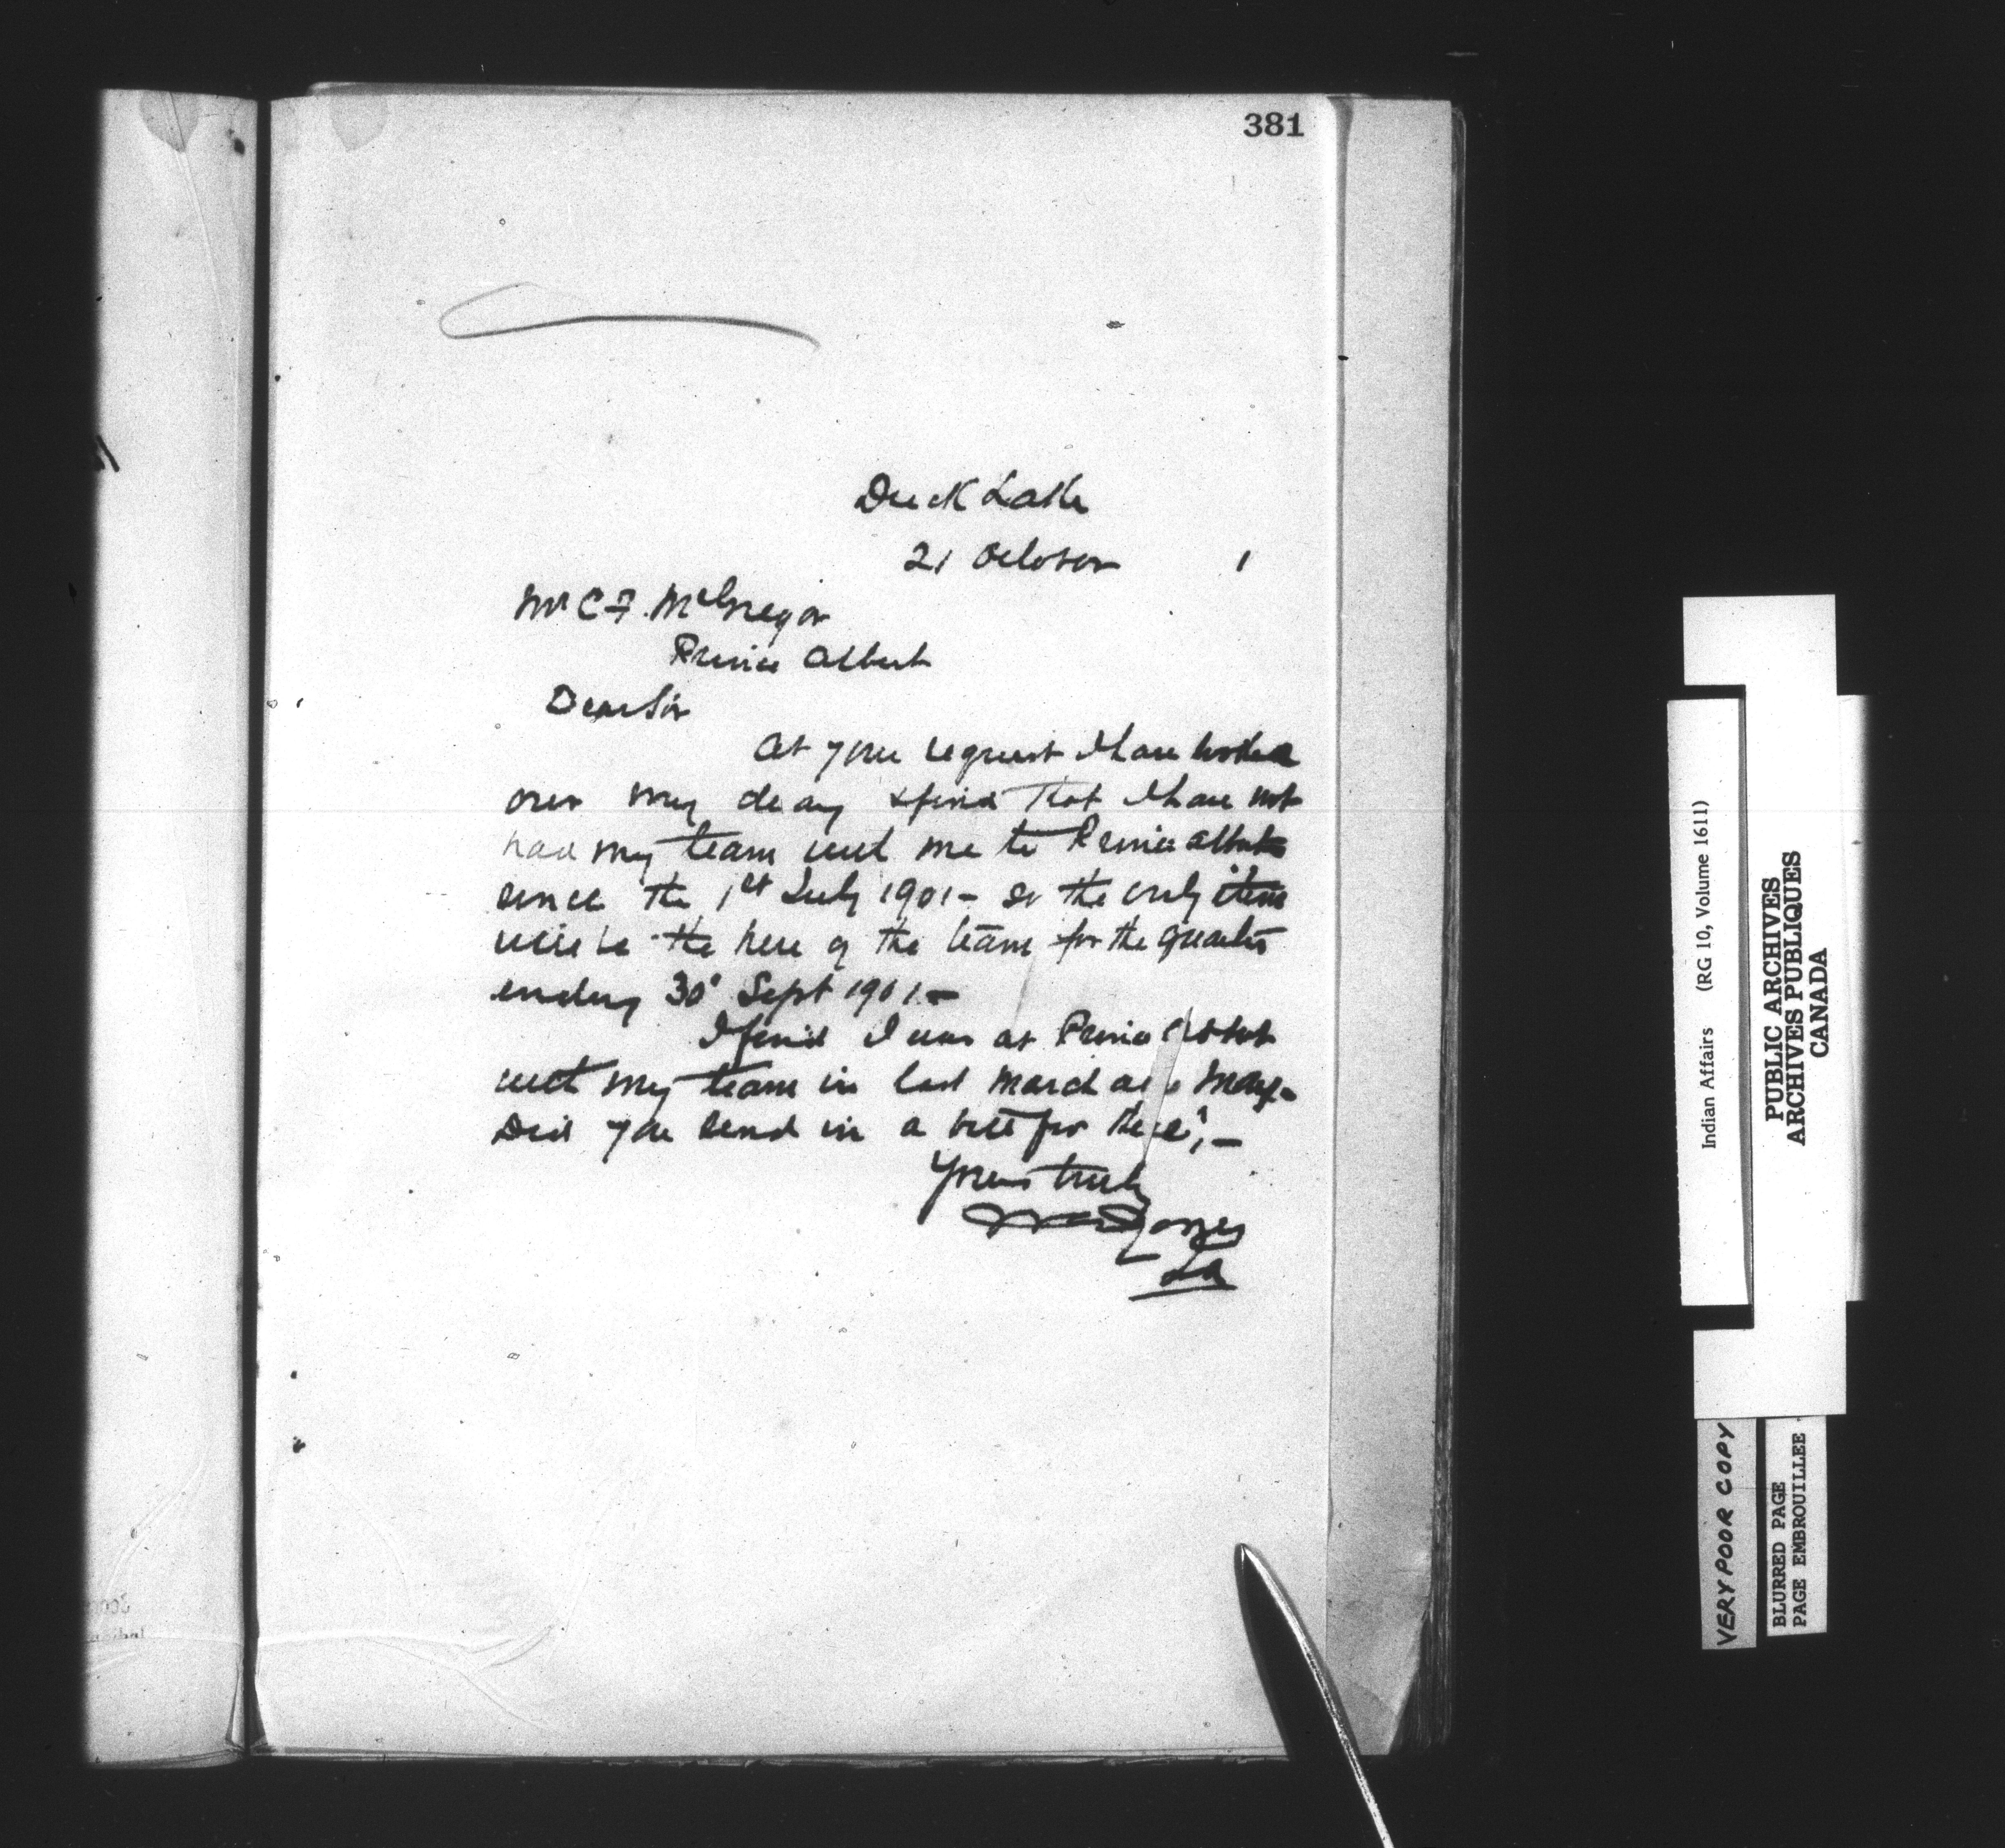 381
Duck Lake
21 October 1
Mr C F. McGregor
Prince Albert
Dear Sir
At your request I have looked
over my diary & find that I have not
had my team with me to Prince Albert
since the 1st July 1901 - so the only item
will be the hire of the team for the quarter
ending 30' Sept 1901. -
I find I was at Prince Albert
with my team in last March and May -
Did you send in a bill for these', -
Yours truly
Indian Affairs (RG 10, Volume 1611)
PUBLIC ARCHIVES
ARCHIVES PUBLIQUES
CANADA
VERY POOR COPY
BLURRED PAGE
PAGE EMBROUILLEE